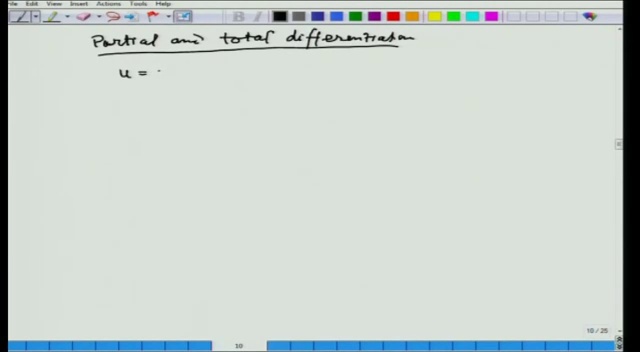 File Edit View Insert Actions Tools Help
Partial and total differentiation
u =
10 / 25
10